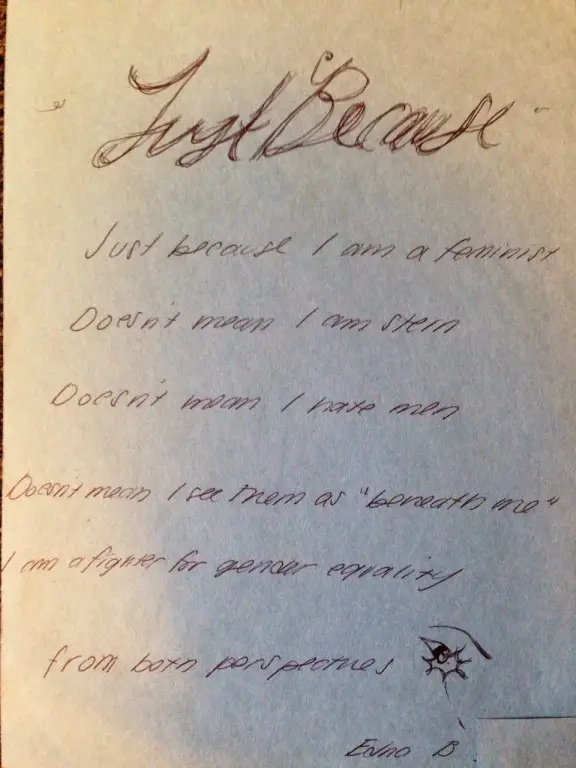 "Just Because"
Just because I am a feminist
Doesn't mean I am stern
Doesn't mean I hate men
Doesn't mean I see them as "beneath me"
I am a fighter for gender equality
from both perspectives
Edna B